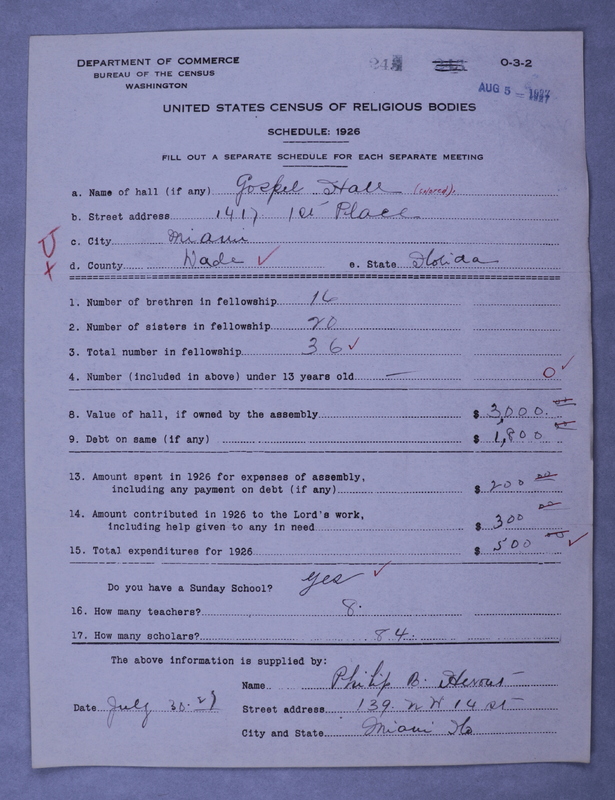 DEPARTMENT OF COMMERCE
BUREAU OF THE CENSUS
WASHINGTON
O-3-2
AUG 5 - 1927
UNITED STATES CENSUS OF RELIGIOUS BODIES
SCHEDULE: 1926
FILL OUT A SEPARATE SCHEDULE FOR EACH SEPARATE MEETING
a. Name of hall (if any) Gospel Hall
b. Street address 1417 1st Place
c. City Miami
d. County Dade ✓ e. State Florida
1. Number of brethren in fellowship 16
2. Number of sisters in fellowship 20
3. Total number in fellowship 36 ✓
4. Number (included in above) under 13 years old — 0 ✓
8. Value of hall, if owned by the assembly $ 3,000.
9. Debt on same (if any) $ 1,800
13. Amount spent in 1926 for expenses of assembly,
including any payment on debt (if any) $ 200 00
14. Amount contributed in 1926 to the Lord's work,
including help given to any in need $ 300 00
15. Total expenditures for 1926 $ 500 ✓
Do you have a Sunday School? yes ✓
16. How many teachers? 8.
17. How many scholars? 84.
The above information is supplied by:
Name Philip B.
Date July 30-27 Street address 139 N W 14 st
City and State Miami Fla